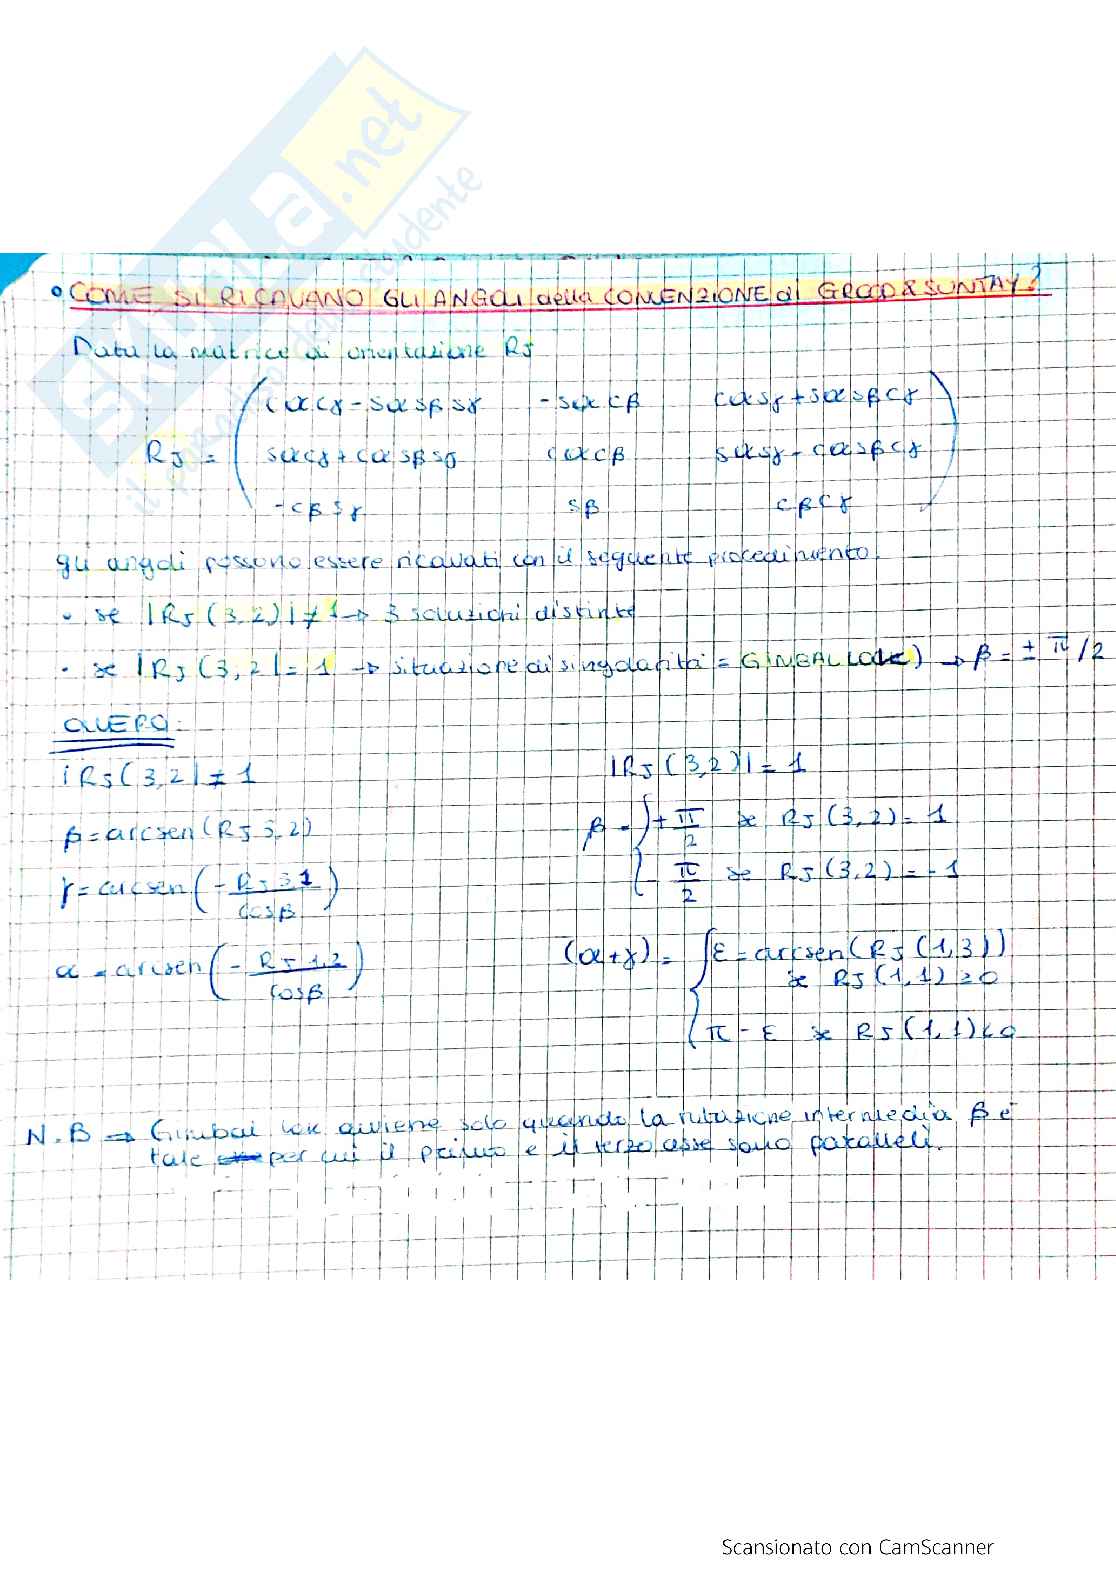 SKUOLA.net
il paradiso dello studente
• COME SI RICAVANO GLI ANGOLI della CONVENZIONE di GROOD & SUNTAY?
Data la matrice di orientazione RJ
RJ = ( cαcγ - sαsβsγ   -sαcβ   cαsγ + sαsβcγ
sαcγ + cαsβsγ   cαcβ   sαsγ - cαsβcγ
-cβsγ   sβ   cβcγ )
gli angoli possono essere ricavati con il seguente procedimento.
• se |RJ(3,2)| ≠ 1 → 3 soluzioni distinte
• se |RJ(3,2| = 1 → situazione di singolarità = GIMBAL LOCK) → β = ± π/2
OVVERO:
|RJ(3,2| ≠ 1
|RJ(3,2)| = 1
β = arcsen(RJ3,2)
β = { + π/2 se RJ(3,2) = 1
- π/2 se RJ(3,2) = -1
γ = arcsen(- RJ31 / cosβ)
α = arcsen(- RJ1,2 / cosβ)
(α+γ) = { ε = arcsen(RJ(1,3))
se RJ(1,1) ≥ 0
π - ε se RJ(1,1) < 0
N.B → Gimbal lok avviene solo quando la rotazione intermedia β è
tale per cui il primo e il terzo asse sono paralleli.
Scansionato con CamScanner